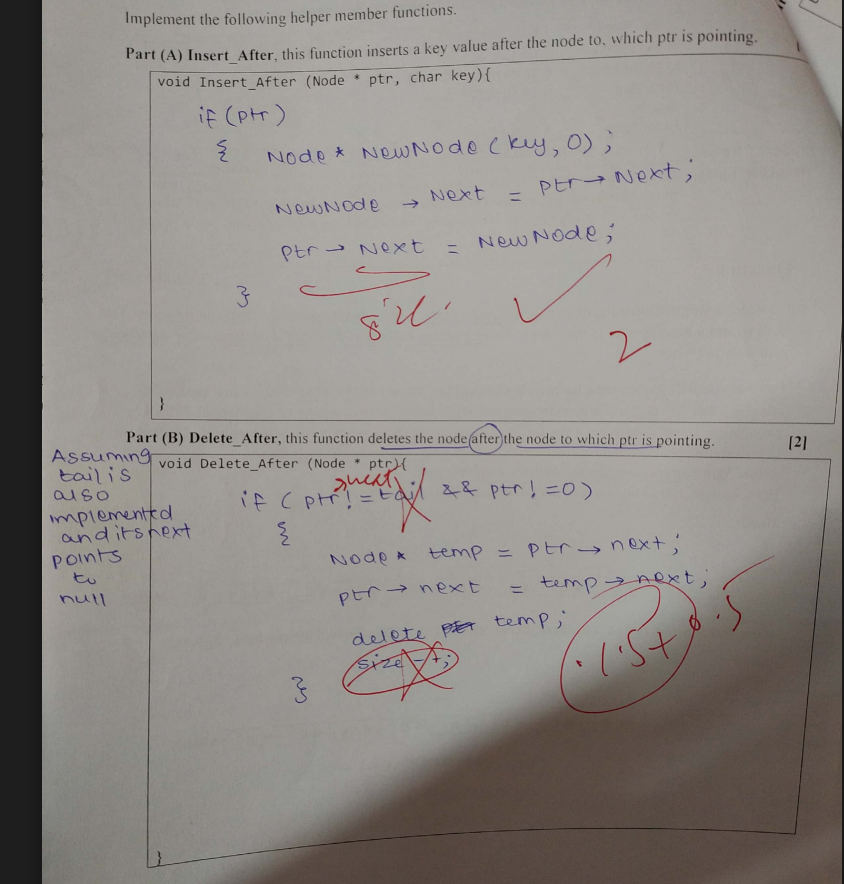 Implement the following helper member functions.
Part (A) Insert_After, this function inserts a key value after the node to, which ptr is pointing.
void Insert_After (Node * ptr, char key){
if (ptr)
{ Node * NewNode (key, 0);
NewNode → Next = Ptr → Next;
Ptr → Next = NewNode;
}
2
}
Part (B) Delete_After, this function deletes the node after the node to which ptr is pointing. [2]
Assuming
tail is
also
implemented
and its next
points
to
null
void Delete_After (Node * ptr){
→next
if ( ptr != tail && ptr != 0)
{
Node * temp = ptr → next;
ptr → next = temp → next;
delete temp;
size --;
}
1.5 + 0.5
}